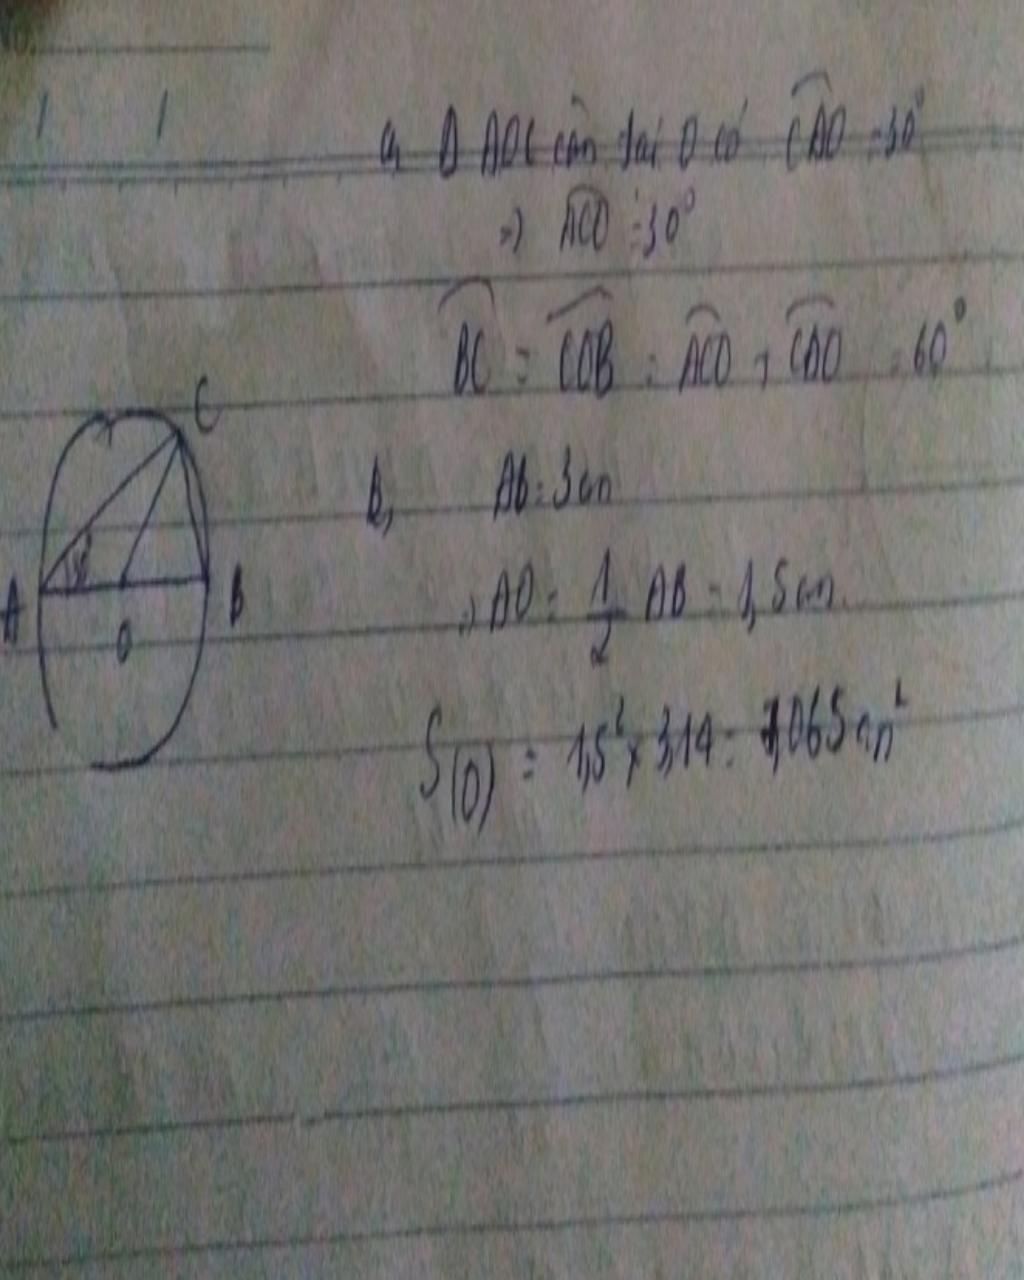 a, Δ AOC cân tại O có CAO = 30°
=> ACO = 30°
BC = COB = ACO + CAO = 60°
C
b, AB = 3cm
=> AO = 1/2 AB = 1,5cm
A
B
O
S(O) = 1,5² x 3,14 = 7,065 cm²